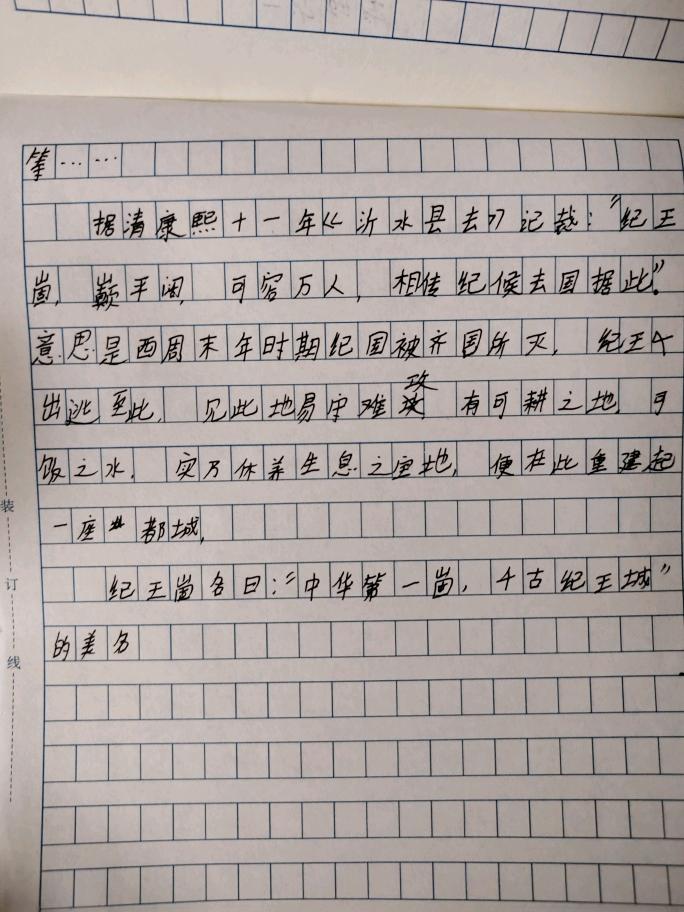 等……
据清康熙十一年《沂水县去》记裁：“纪王
崮，巅平阔，可容万人，相传纪候去国据此”。
意思是西周末年时期纪国被齐国所灭，纪王
出逃至此，见此地易守难攻，有可耕之地，可
饭之水，实乃休养生息之宝地，便在此重建起
一座都城，
纪王崮各曰：“中华第一崮，千古纪王城”
的美名
装
订
线